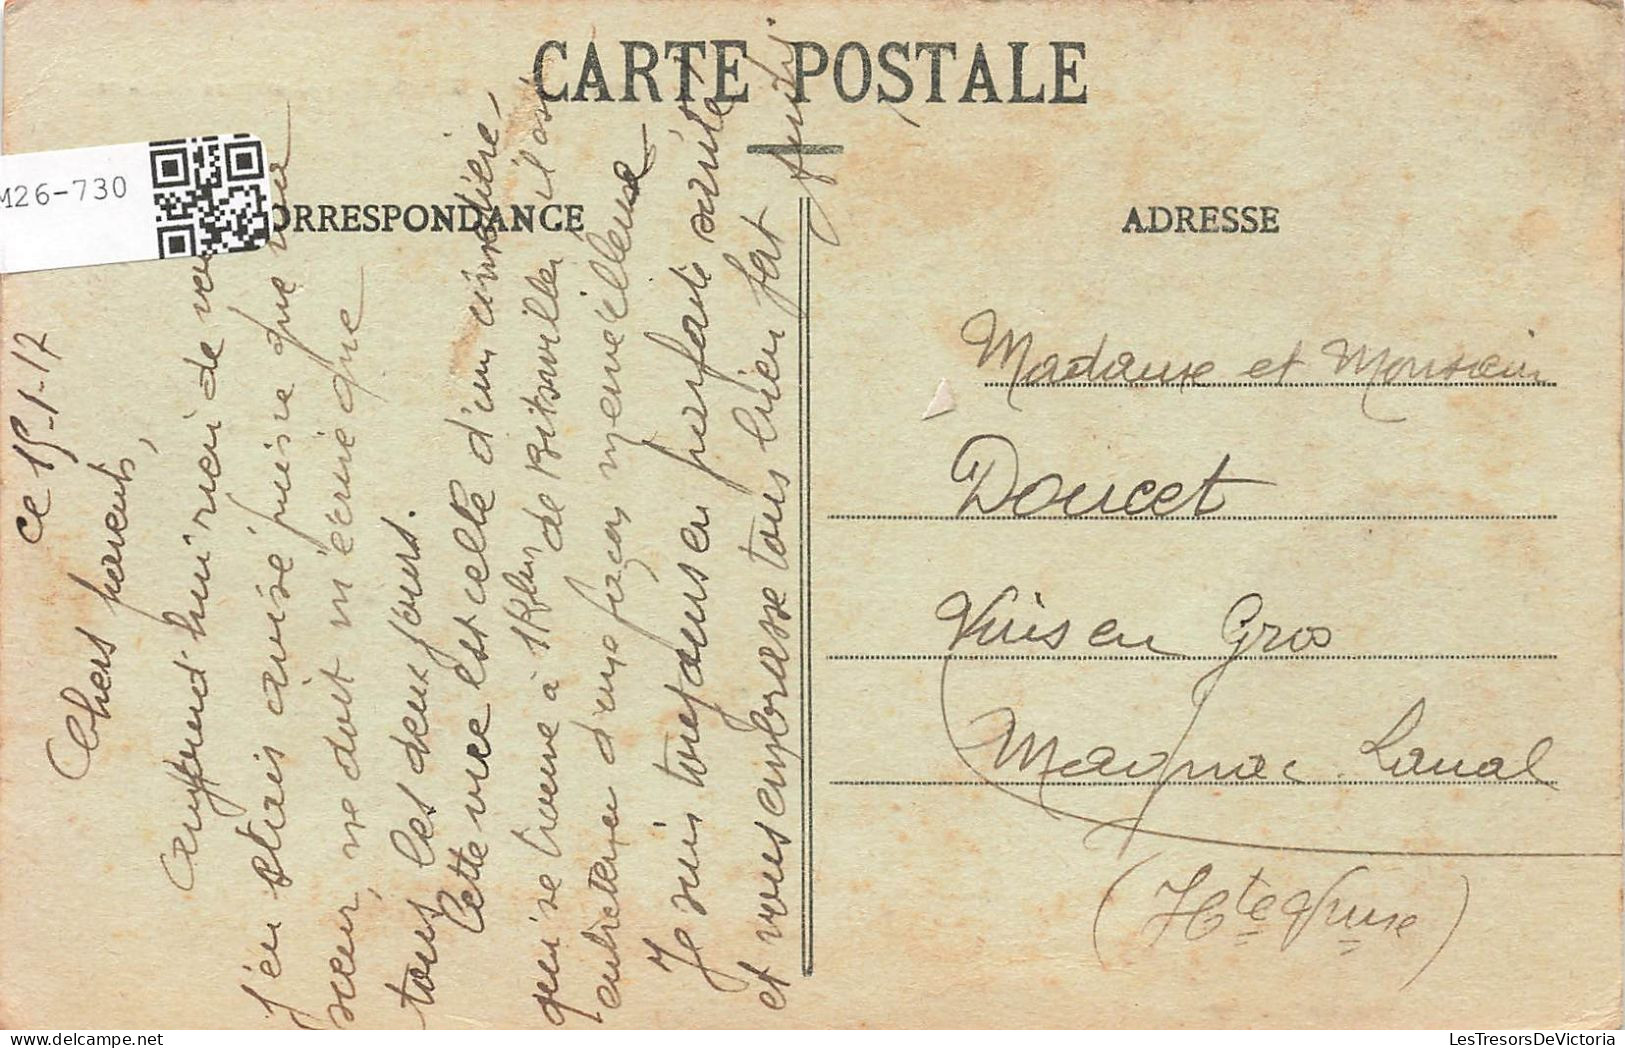 CARTE POSTALE
M26-730
ORRESPONDANCE
ADRESSE
ce 15-1-17
Chers parents,
Aujourd'hui rien de vous
j'en étais avisé puisque ma
sœur, ne doit m'écrire que
tous les deux jours.
Cette vue est celle d'un cimetière,
qui se trouve à 1 Klm de il est
entretenu d'une façon merveilleuse
Je suis toujours en parfaite santé
et vous embrasse tous bien fort
Madame et Monsieur
Doucet
Vins en Gros
Magnac Laval
(Hte Vienne)
LesTresorsDeVictoria